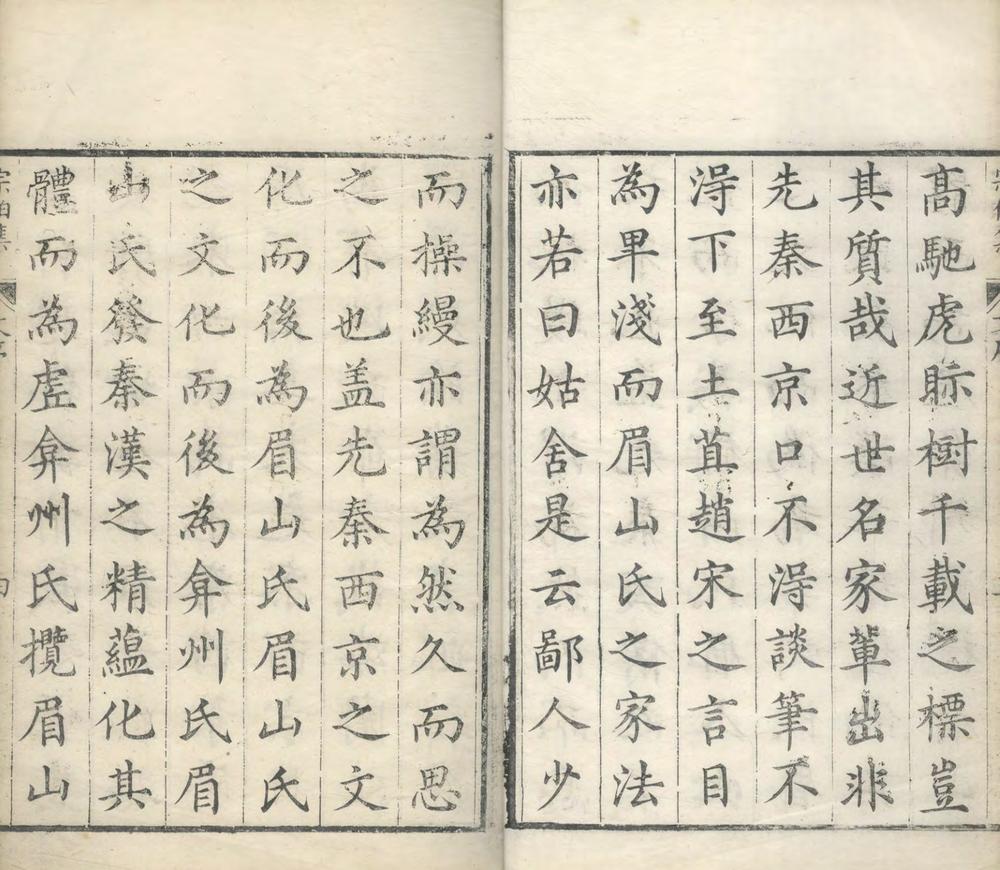 高馳虎眎樹千載之標豈
其質哉近世名家輩出非
先秦西京口不淂談筆不
淂下至土苴趙宋之言目
為卑淺而眉山氏之家法
亦若曰姑舍是云鄙人少
而操縵亦謂為然久而思
之不也盖先秦西京之文
化而後為眉山氏眉山氏
之文化而後為弇州氏眉
山氏發秦漢之精蘊化其
體而為虛弇州氏攬眉山